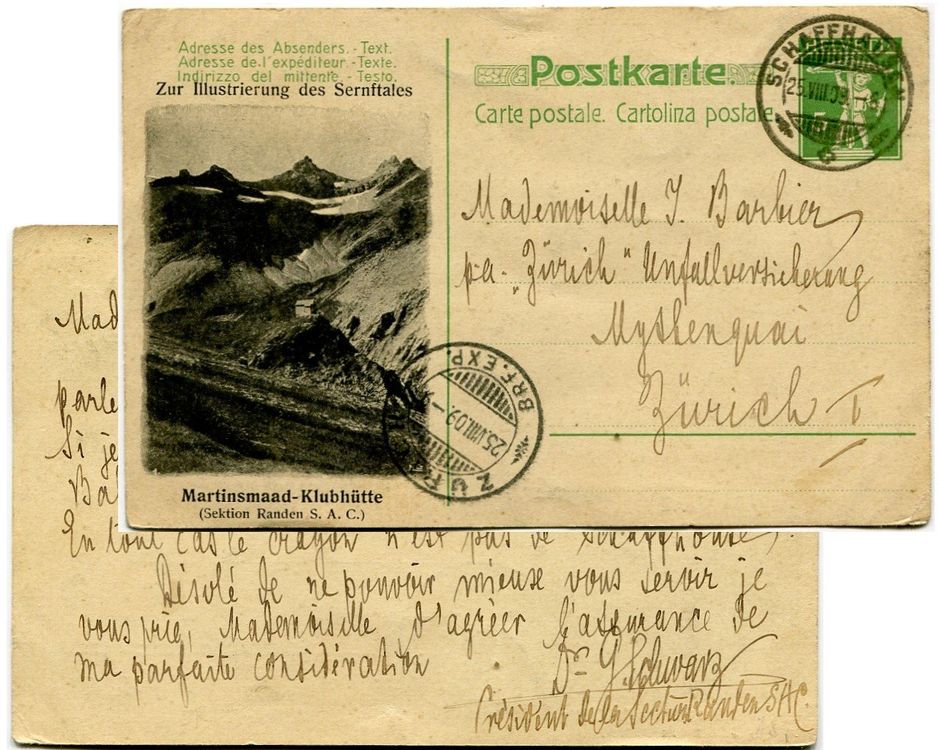 Adresse des Absenders. - Text.
Adresse de l'expéditeur. - Texte.
Indirizzo del mittente. - Testo.
Zur Illustrierung des Sernftales
Martinsmaad-Klubhütte
(Sektion Randen S. A. C.)
Postkarte.
Carte postale. Cartolina postale.
SCHAFFHAUSEN
25.VIII.09.
5
Mademoiselle J. Barbier
pa. „Zürich" Unfallversicherung
Mythenquai
Zürich I
ZÜRICH
25.VIII.09.
BRF. EXP.
Mad
parle
Si je
Ba
En tout cas le crayon n'est pas de Schaffhouse,
Désolé de ne pouvoir mieux vous servir je
vous prie, Mademoiselle, d'agréer l'assurance de
ma parfaite considération
Dr. G. Schwarz
Président de la Section Randen S.A.C.